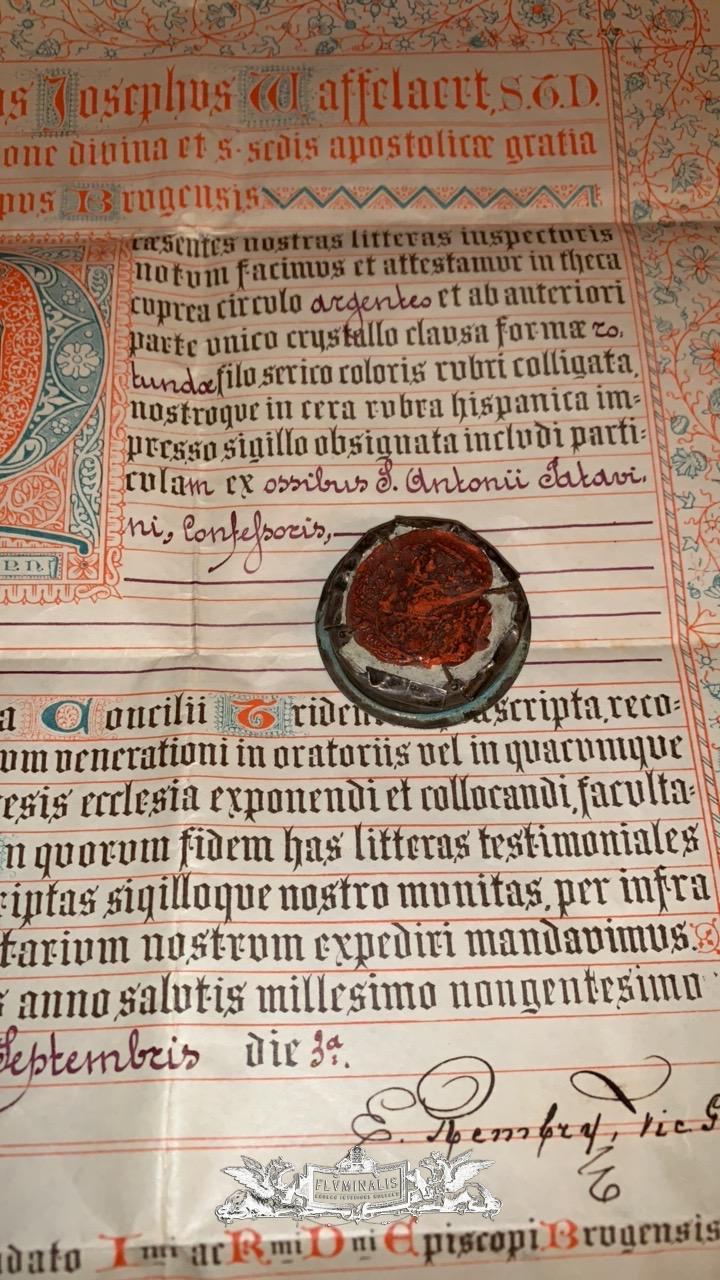 us Josephus Waffelaert, S.T.D.
one divina et s. sedis apostolicæ gratia
pus Brugensis
ræsentes nostras litteras inspecturis
notum facimus et attestamur in theca
cuprea circulo argenteo et ab anteriori
parte unico crystallo clausa formæ ro,
tundæ filo serico coloris rubri colligata,
nostroque in cera rubra hispanica im=
presso sigillo obsignata includi parti=
culam ex ossibus S. Antonii Patavi.
ni, Confessoris,
a Concilii Triden scripta, reco=
um venerationi in oratoriis vel in quacumque
esis ecclesia exponendi et collocandi, faculta=
n quorum fidem has litteras testimoniales
riptas sigilloque nostro munitas, per infra
tarium nostrum expediri mandavimus.
s anno salutis millesimo nongentesimo
Septembris die 3ª.
E. Rembry, Vic. G
FLVMINALIS
ndato Imi ac Rmi Dni Episcopi Brugensis